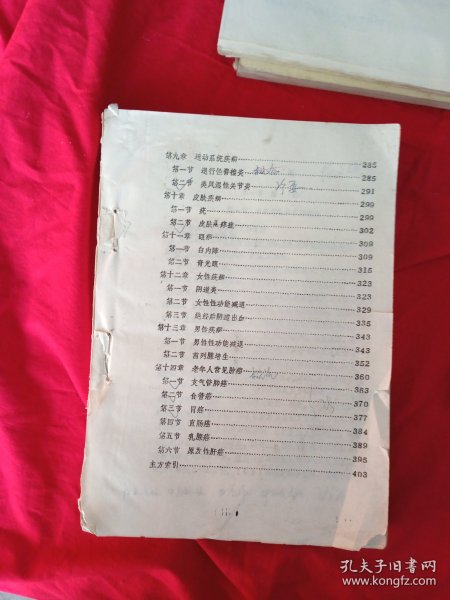 第九章 运动系统疾病 285
第一节 退行性脊椎炎 285
第二节 类风湿性关节炎 291
第十章 皮肤疾病 299
第一节 疣 299
第二节 皮肤瘙痒症 302
第十一章 眼病 309
第一节 白内障 309
第二节 青光眼 315
第十二章 女性疾病 323
第一节 阴道炎 323
第二节 女性性功能减退 329
第三节 绝经后阴道出血 335
第十三章 男性疾病 343
第一节 男性性功能减退 343
第二节 前列腺增生 352
第十四章 老年人常见肿瘤 360
第一节 支气管肺癌 363
第二节 食管癌 370
第三节 胃癌 377
第四节 直肠癌 384
第五节 乳腺癌 389
第六节 原发性肝癌 395
主方索引 403
孔夫子旧书网
www.kongfz.com